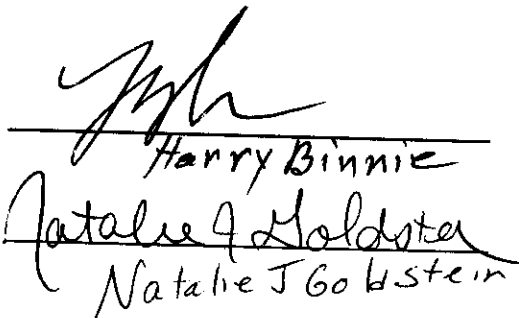 Harry Binnie
Natalie J Goldstein
Natalie J Goldstein